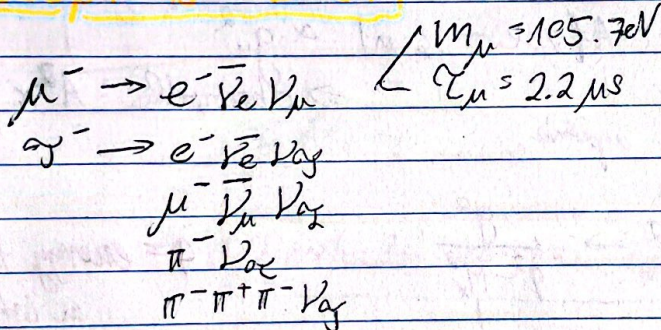 μ⁻ → e⁻ ν̄e νμ
mμ = 105.7eV
τμ = 2.2 μs
τ⁻ → e⁻ ν̄e ντ
μ⁻ ν̄μ ντ
π⁻ ντ
π⁻ π⁺ π⁻ ντ